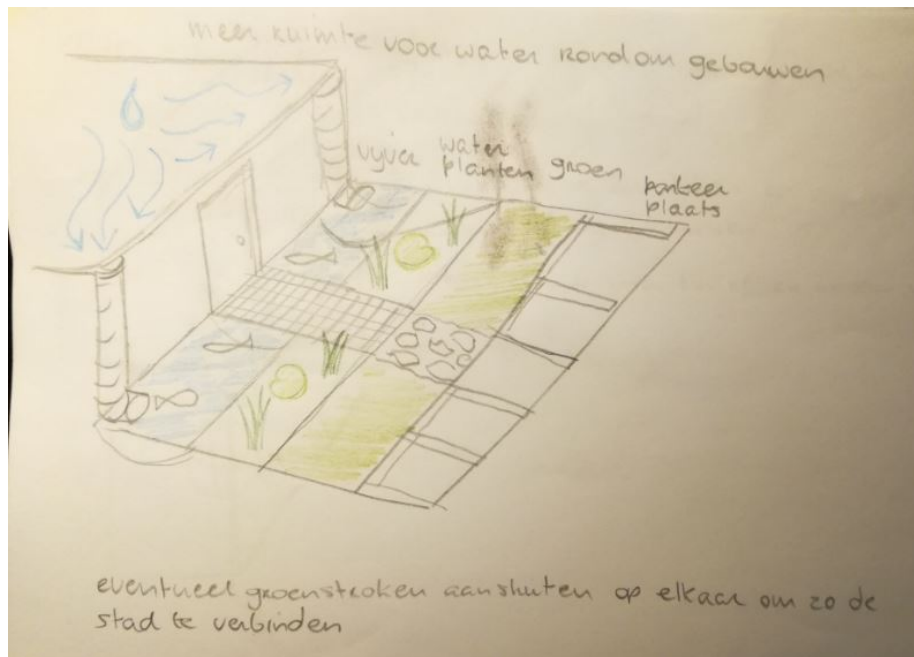 meer ruimte voor water rondom gebouwen
vyver
water
planten
groen
parkeer
plaats
eventueel groenstroken aansluiten op elkaar om zo de
stad te verbinden